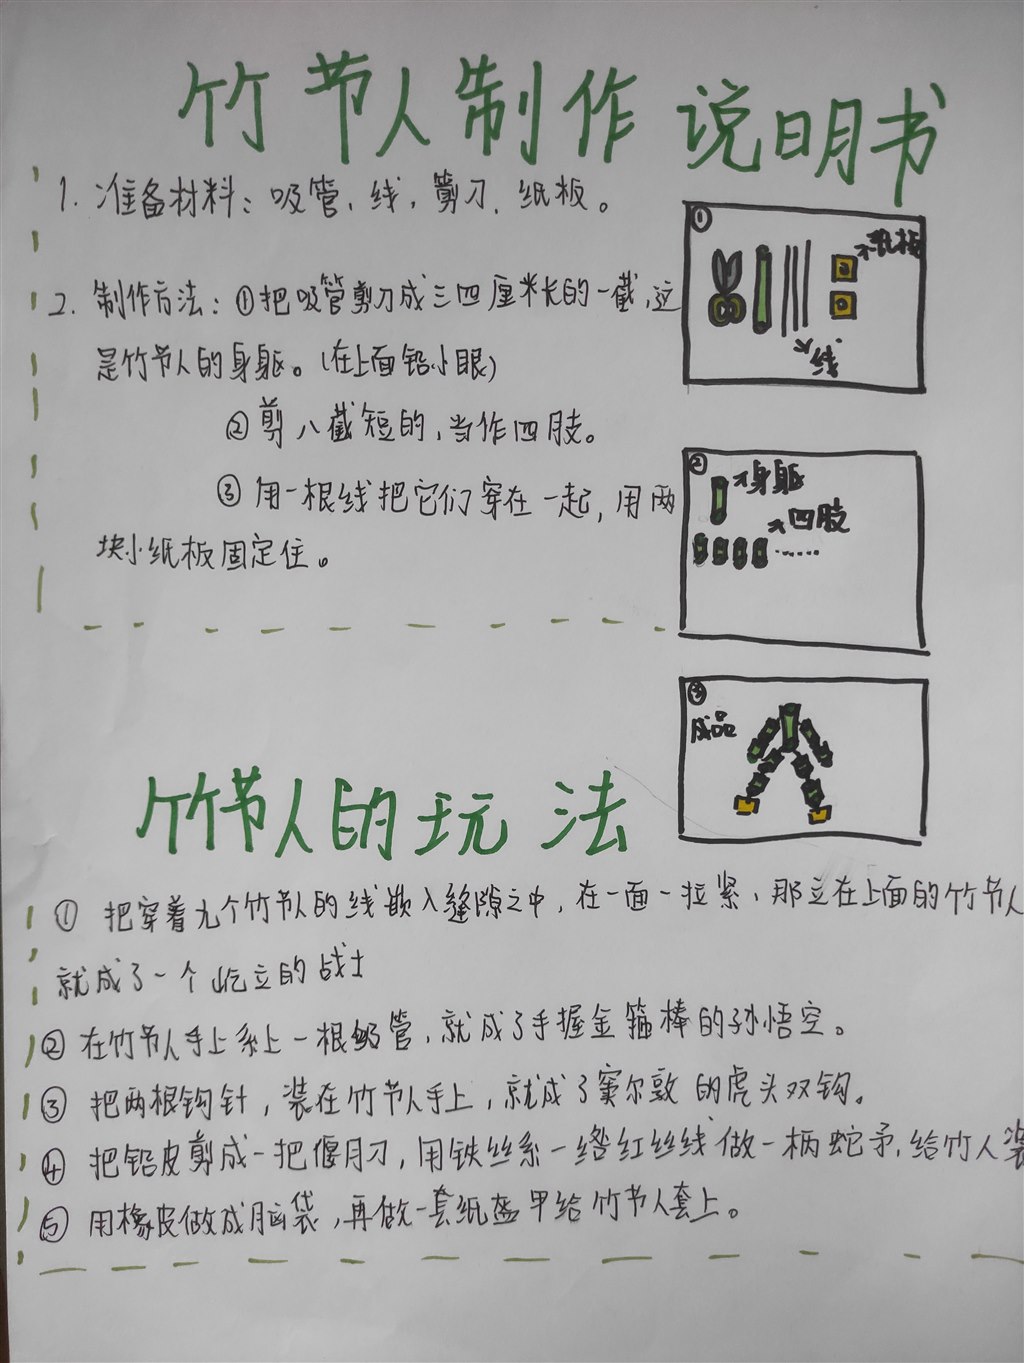 竹节人制作说明书
1. 准备材料：吸管、线，剪刀、纸板。
2. 制作方法：①把吸管剪刀成三四厘米长的一截，这
是竹节人的身躯。（在上面钻小眼）
②剪八截短的，当作四肢。
③用一根线把它们穿在一起，用两
块小纸板固定住。
①
纸板
线
②
身躯
四肢
……
③
成品
竹节人的玩法
①把穿着九个竹节人的线嵌入缝隙之中，在一面一拉紧，那立在上面的竹节人
就成了一个屹立的战士
②在竹节人手上系上一根吸管，就成了手握金箍棒的孙悟空。
③把两根钩针，装在竹节人手上，就成了窦尔敦的虎头双钩。
④把铅皮剪成一把偃月刀，用铁丝系一绺红丝线做一柄蛇矛，给竹人装
⑤用橡皮做成脑袋，再做一套纸盔甲给竹节人套上。